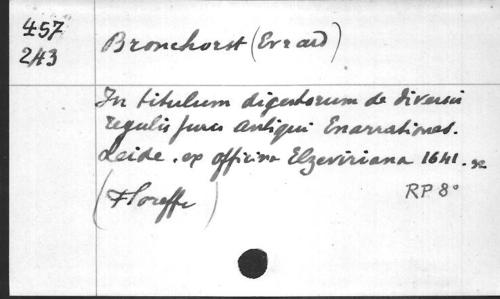 457
243
Bronchorst (Evrard)
In titulum digestorum de diversis
regulis juris antiqui Enarrationes.
Leide. ex officina Elzeviriana 1641.
(Floreffe)
RP 8°